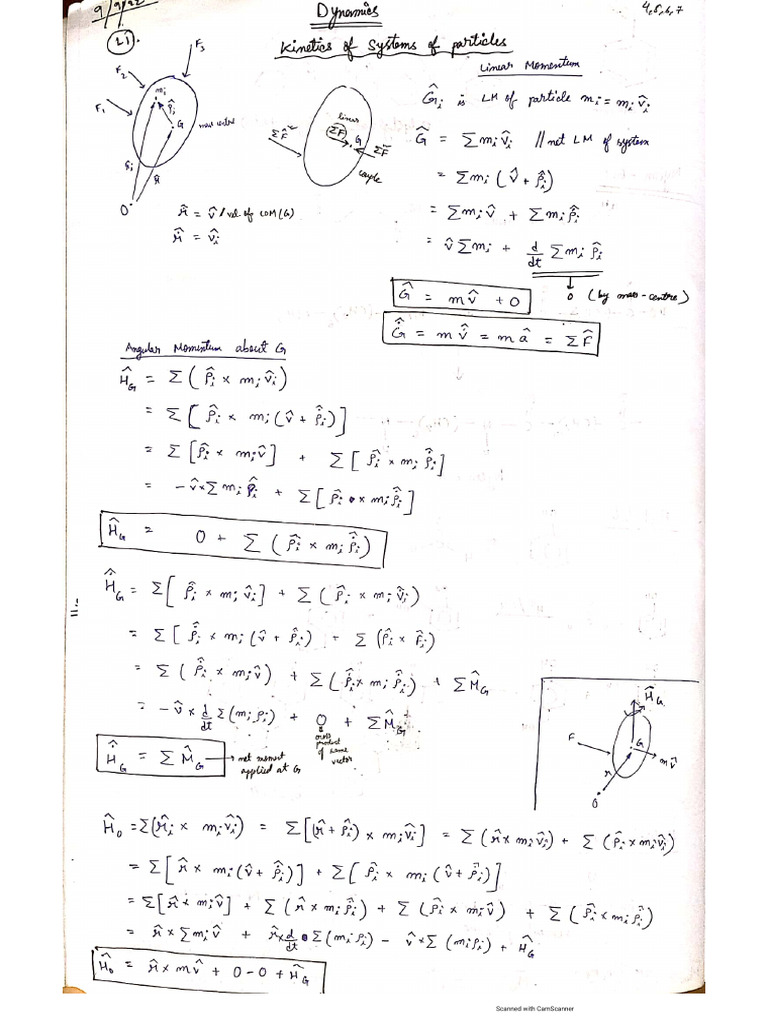 9/9/22
Dynamics
4,5,6,7
L1.
Kinetics of Systems of particles
Linear Momentum
F₁ F₂ F₃ mᵢ ρ̂ᵢ G mass centre rᵢ r O
ΣF̂ linear ΣF G ΣF̂ couple
Ĝᵢ is LM of particle mᵢ = mᵢ v̂ᵢ
Ĝ = Σmᵢv̂ᵢ // net LM of system
= Σmᵢ (v̂ + ρ̂̇ᵢ)
= Σmᵢv̂ + Σmᵢρ̂̇ᵢ
= v̂Σmᵢ + d/dt Σmᵢρ̂ᵢ
r̂̇ = v̂ / vel of COM (G)
r̂̇ = v̂ᵢ
0 (by mass-centre)
Ĝ = mv̂ + 0
Ĝ̇ = mv̂̇ = mâ = ΣF̂
Angular Momentum about G
Ĥ_G = Σ(ρ̂ᵢ × mᵢv̂ᵢ)
= Σ[ρ̂ᵢ × mᵢ(v̂ + ρ̂̇ᵢ)]
= Σ[ρ̂ᵢ × mᵢv̂] + Σ[ρ̂ᵢ × mᵢρ̂̇ᵢ]
= -v̂×Σmᵢρ̂ᵢ + Σ[ρ̂ᵢ × mᵢρ̂̇ᵢ]
Ĥ_G = 0 + Σ(ρ̂ᵢ × mᵢρ̂̇ᵢ)
Ĥ̇_G = Σ[ρ̂̇ᵢ × mᵢv̂ᵢ] + Σ(ρ̂ᵢ × mᵢv̂̇ᵢ)
= Σ[ρ̂̇ᵢ × mᵢ(v̂ + ρ̂̇ᵢ) + Σ(ρ̂ᵢ × F̂ᵢ)
= Σ(ρ̂̇ᵢ × mᵢv̂) + Σ(ρ̂̇ᵢ × mᵢρ̂̇ᵢ) + ΣM̂_G
= -v̂ × d/dt Σ(mᵢρᵢ) + 0 + ΣM̂_G
cross product of same vector
Ĥ̇_G = ΣM̂_G → net moment applied at G
Ĥ_G F G mv̂ r O
Ĥ₀ = Σ(r̂ᵢ × mᵢv̂ᵢ) = Σ[(r̂ + ρ̂ᵢ) × mᵢv̂ᵢ] = Σ(r̂ × mᵢv̂ᵢ) + Σ(ρ̂ᵢ × mᵢv̂ᵢ)
= Σ[r̂ × mᵢ(v̂ + ρ̂̇ᵢ)] + Σ[ρ̂ᵢ × mᵢ(v̂ + ρ̂̇ᵢ)]
= Σ[r̂ × mᵢv̂] + Σ(r̂ × mᵢρ̂̇ᵢ) + Σ(ρ̂ᵢ × mᵢv̂) + Σ(ρ̂ᵢ × mᵢρ̂̇ᵢ)
= r̂ × Σmᵢv̂ + r̂ × d/dt Σ(mᵢρᵢ) - v̂ × Σ(mᵢρᵢ) + Ĥ_G
Ĥ₀ = r̂ × mv̂ + 0 - 0 + Ĥ_G
Scanned with CamScanner